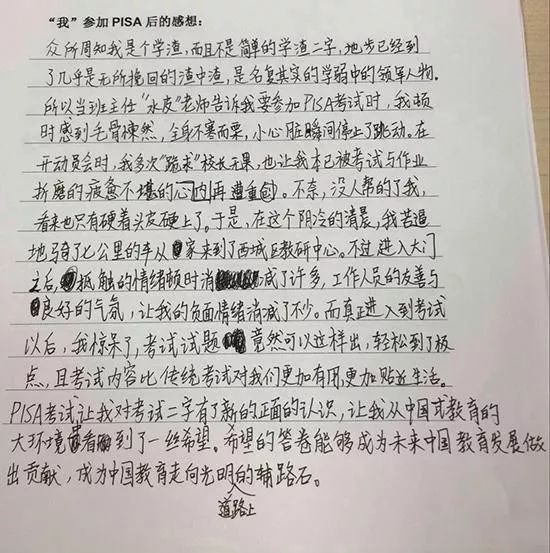 “我”参加 PISA 后的感想：
众所周知我是个学渣，而且不是简单的学渣二字，地步已经到
了几乎是无所挽回的渣中渣，是名复其实的学弱中的领军人物。
所以当班主任“水皮”老师告诉我要参加PISA考试时，我顿
时感到毛骨悚然，全身不寒而栗，小心脏瞬间停止了跳动。在
开动员会时，我多次“跪求”校长无果，也让我本已被考试与作业
折磨的疲惫不堪的心内再遭重创。不奈，没人帮的了我，
看来也只有硬着头皮硬上了。于是，在这个阴冷的清晨，我苦逼
地骑了七公里的车从家来到了西城区教研中心。不过进入大门
之后，抵触的情绪顿时消减了许多，工作人员的友善与
良好的气氛，让我的负面情绪消减了不少。而真正进入到考试
以后，我惊呆了，考试试题竟然可以这样出，轻松到了极
点，且考试内容比传统考试对我们更加有用，更加贴近生活。
PISA考试让我对考试二字有了新的正面的认识，让我从中国式教育的
大环境看到了一丝希望。希望的答卷能够成为未来中国教育发展做
出贡献，成为中国教育走向光明的辅路石。
道路上